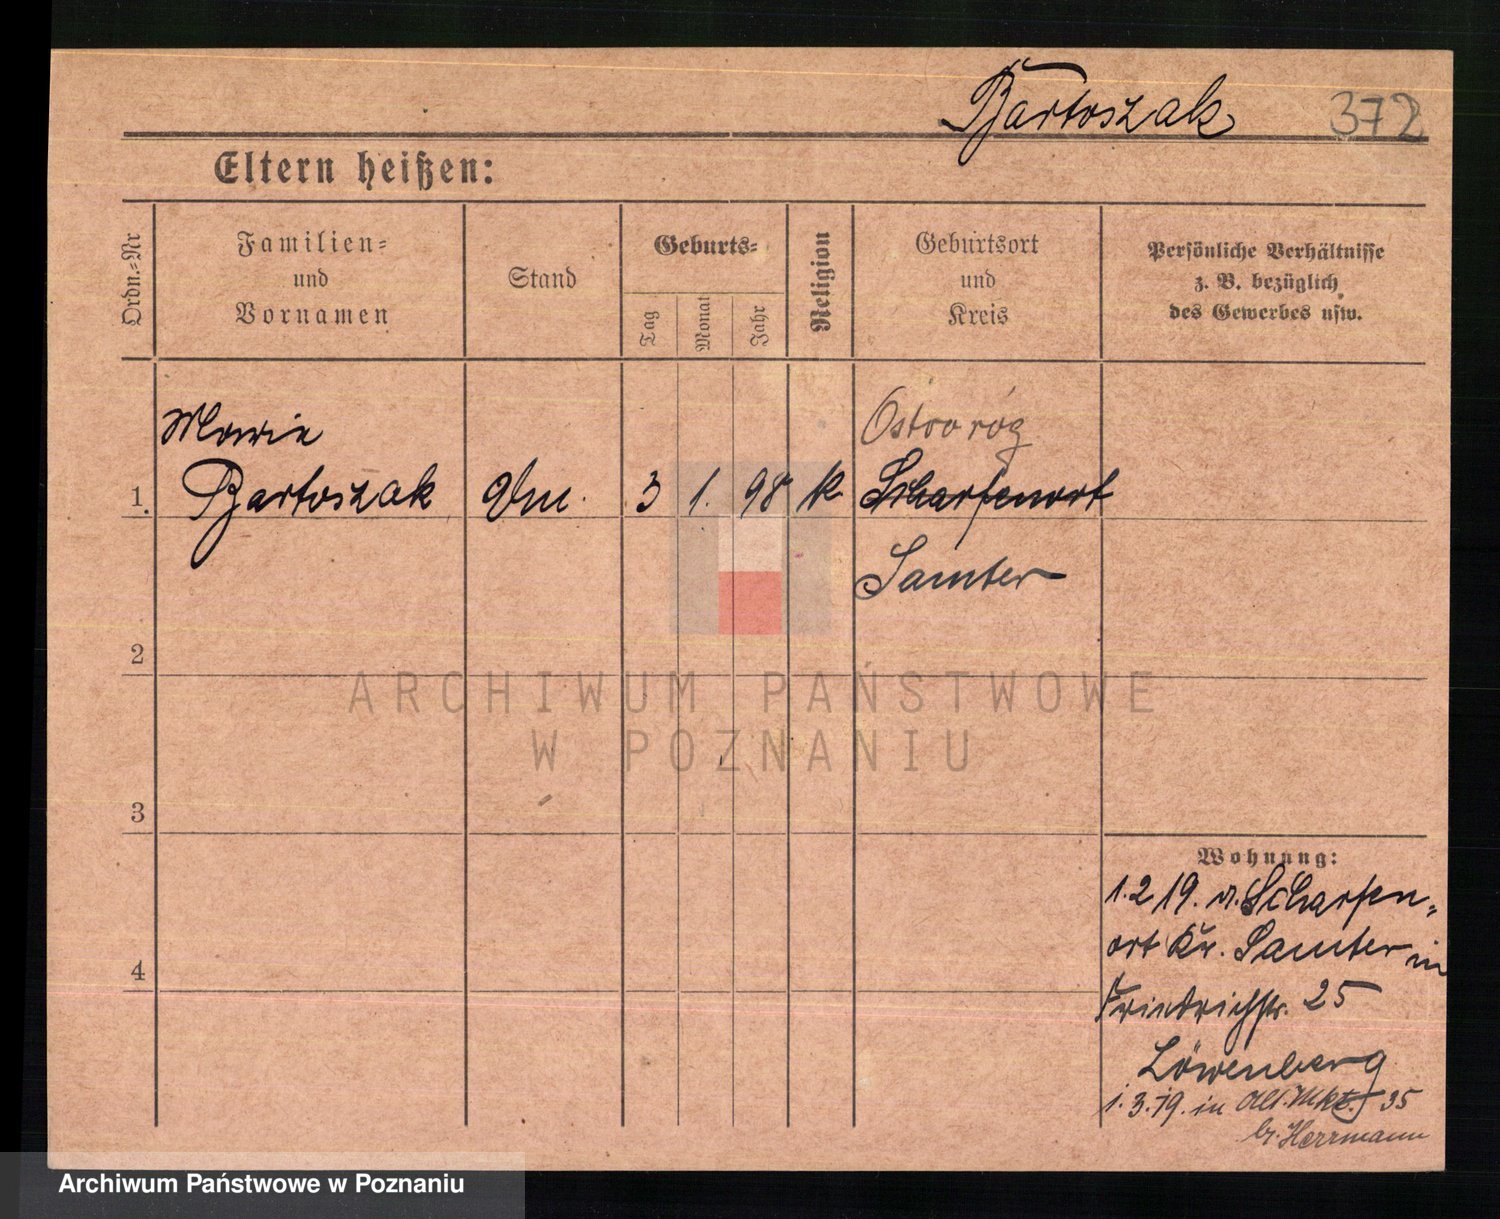 Bartoszak 372
Eltern heißen:
Ordn.-Nr
Familien-
und
Vornamen
Stand
Geburts-
Tag
Monat
Jahr
Religion
Geburtsort
und
Kreis
Persönliche Verhältnisse
z. B. bezüglich
des Gewerbes usw.
Marie
Ostroróg
1. Bartoszak 3 1. 98 k Scharfenort
Samter
2
3
4
Wohnung:
1.2 19. v. Scharfen-
ort Kr. Samter in
Friedrichstr. 25
Löwenberg
1.3.19. in Alt. Mkt. 35
b. Herrmann
ARCHIWUM PAŃSTWOWE
W POZNANIU
Archiwum Państwowe w Poznaniu